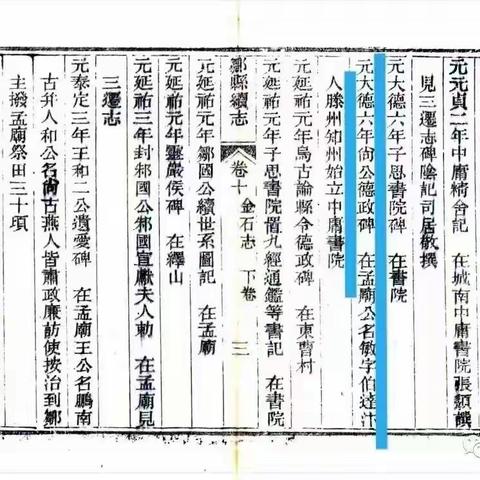 元元貞二年中庸精舍記　在城南中庸書院張䇓撰
見三遷志碑陰記司居敬撰
元大德六年子思書院碑　在書院
元大德六年尙公德政碑　在孟廟公名敏字伯達汴
人滕州知州始立中庸書院
元延祐元年烏古論縣令德政碑　在東曹村
元延祐元年子思書院置九經通鑑等書記　在書院
鄒縣續志　卷十　金石志　下卷　三
元延祐元年鄒國公續世系圖記　在孟廟
元延祐元年靈巖侯碑　在繹山
元延祐三年封邾國公邾國宣獻夫人勅　在孟廟見
三遷志
元泰定三年王和二公遺愛碑　在孟廟王公名鵬南
古幷人和公名尙古燕人皆肅政廉訪使按治到鄒
主撥孟廟祭田三十頃